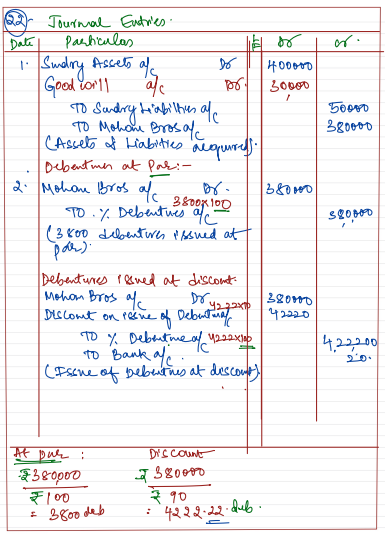 22. Journal Entries.
Date Particulas LF Dr Cr.
1. Sundry Assets a/c Dr 400000
Goodwill a/c Dr. 30000
To Sundry Liabilities a/c 50000
To Mohan Bros a/c 380000
(Assets & Liabities acquired).
Debentures at Par:-
2. Mohan Bros a/c Dr. 380000
3800×100
To % Debentures a/c 380000
(3800 debentures issued at
par).
Debentures issued at discount.
Mohan Bros a/c Dr 380000
Discount on issue of Debentur a/c 4222×10 42220
To % Debenture a/c 4222×100 4,22200
To Bank a/c 20.
(Issue of Debentures at discount).
At par : Discount
₹380,000 ₹ 380000
₹ 100 ₹ 90
= 3800 deb : 4222.22. deb.